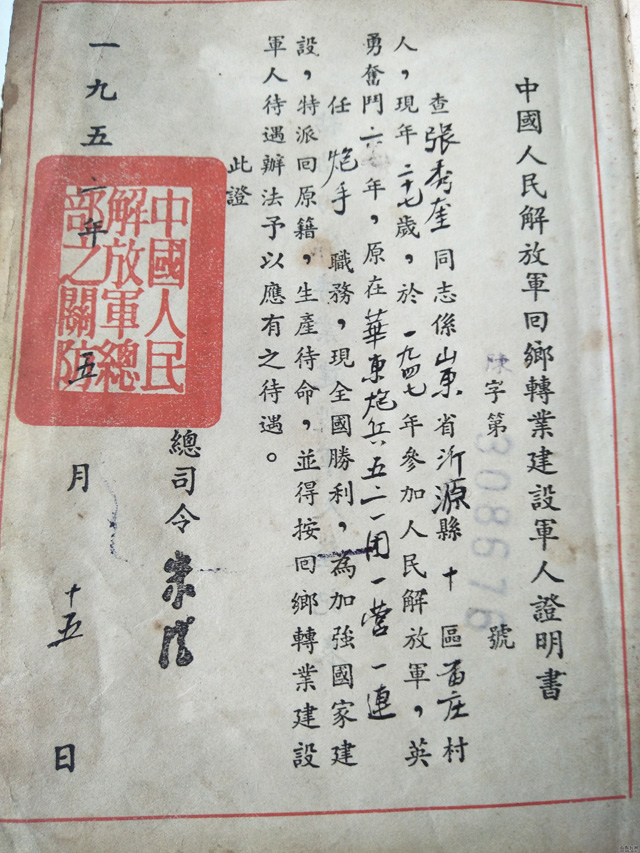 中國人民解放軍回鄉轉業建設軍人證明書
陳字第308676號
查張秀奎同志係山東省沂源縣十區苗庄村
人，現年二十七歲，於一九四七年參加人民解放軍，英
勇奮鬥六年，原在華東炮兵五二一团一营一連
任炮手職務，現全國勝利，為加強國家建
設，特派回原籍，生產待命，並得按回鄉轉業建設
軍人待遇辦法予以應有之待遇。
此證
總司令朱德
一九五二年五月十五日
中國人民
解放軍總
部之關防